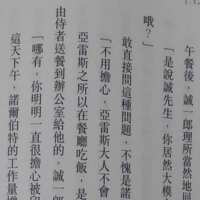 午餐後，誠一郎理所當然地同
「是說誠先生，你居然大模
哦？」
敢直接問這種問題，不愧是諾
「不用擔心，亞雷斯大人不會
亞雷斯之所以在餐廳吃飯，是
由侍者送餐到辦公室給他的，誠一郎
「哪有，你明明一直很擔心被
這天下午，諾爾伯特的工作量